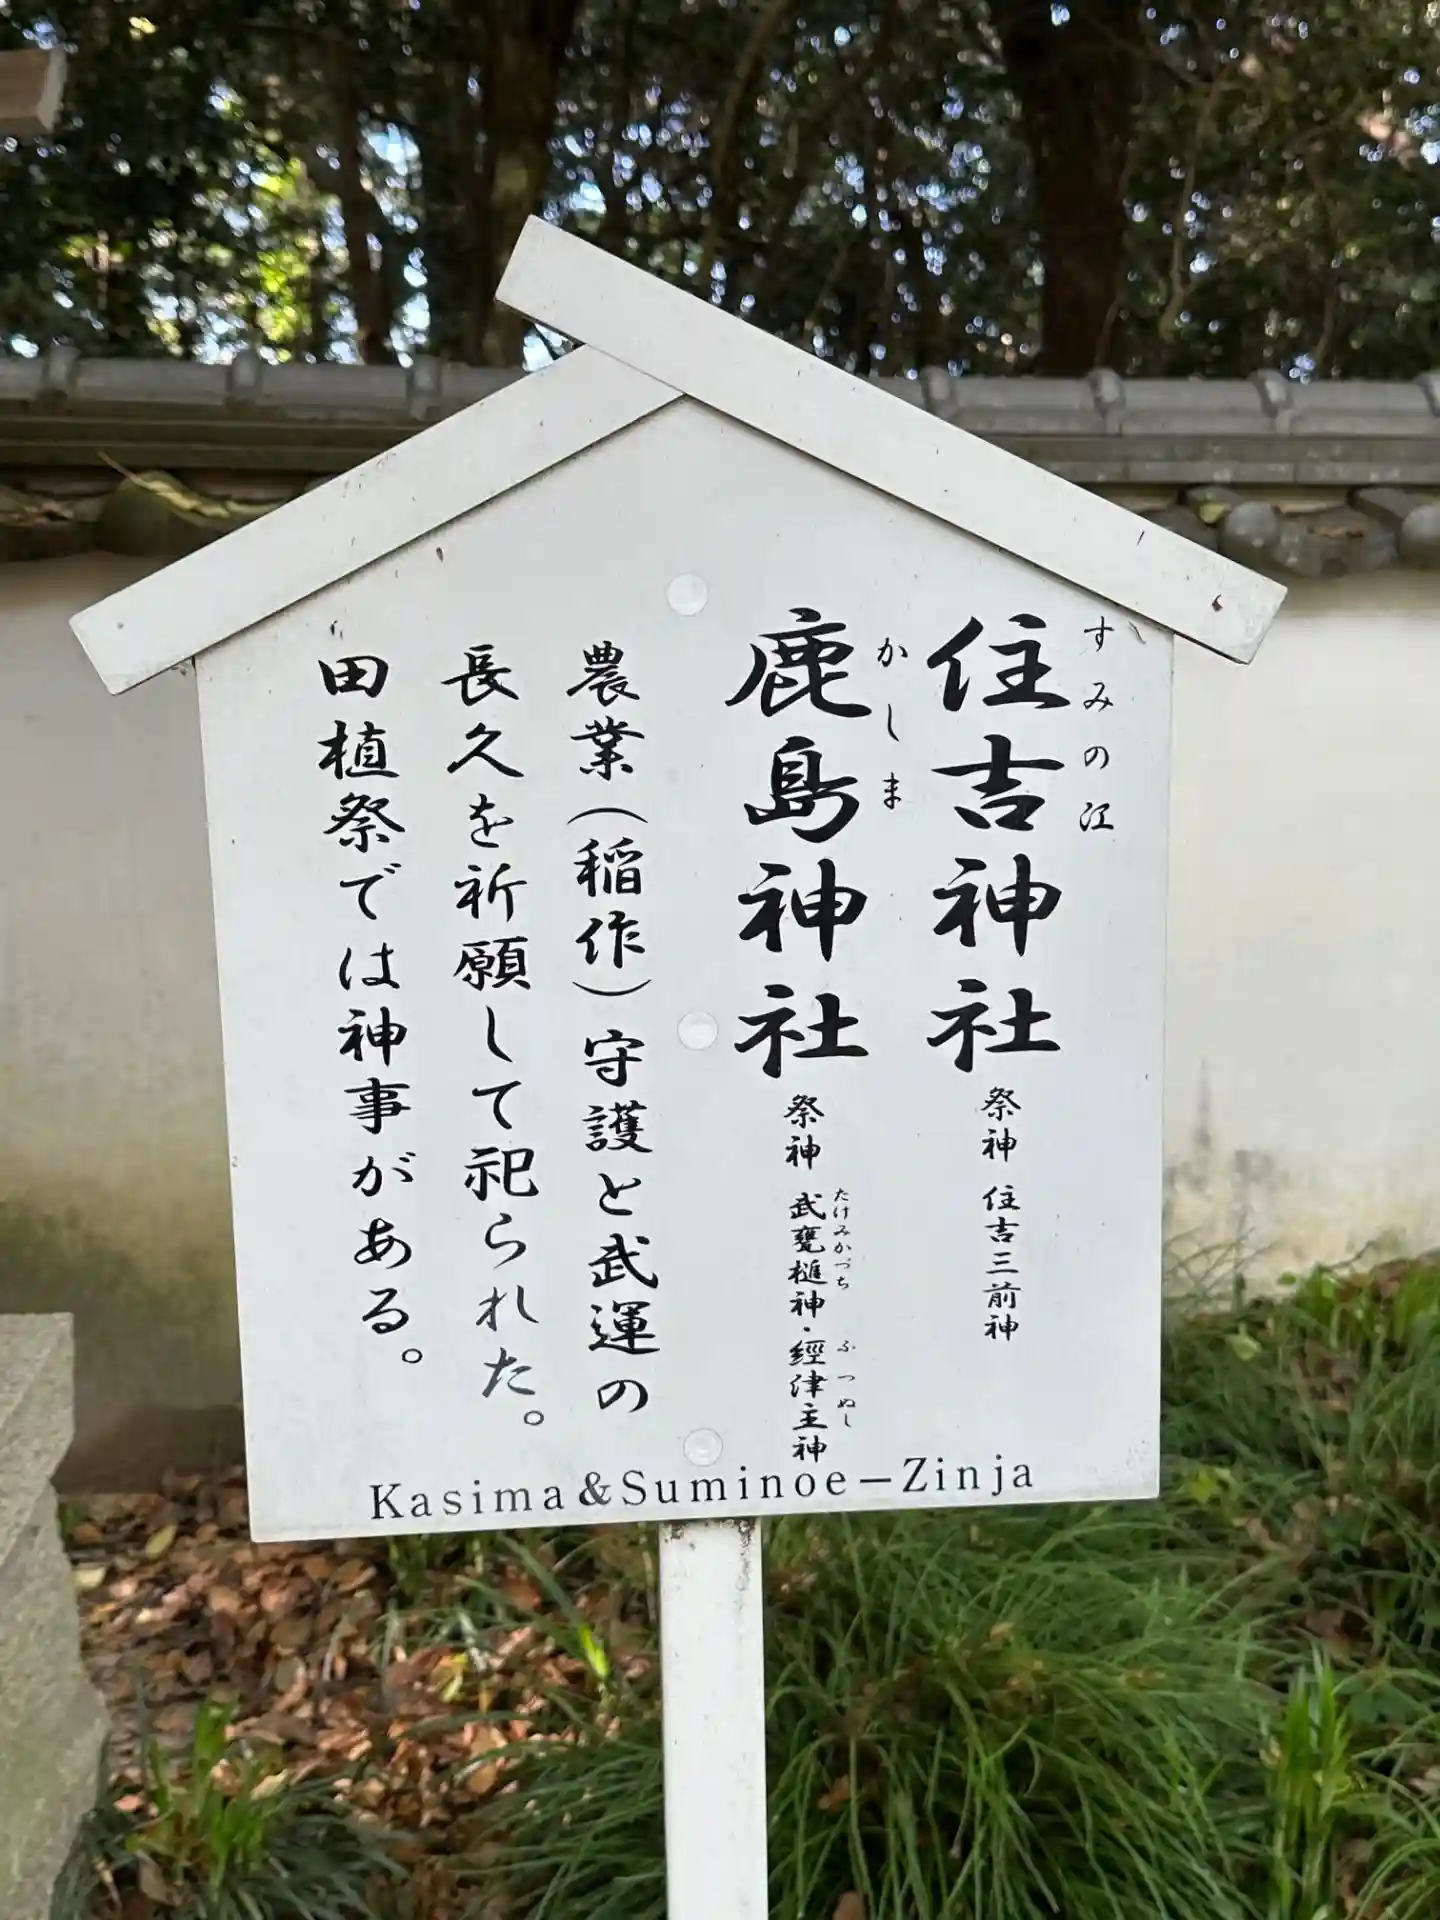 すみの江
住吉神社 祭神 住吉三前神
かしま
鹿島神社 祭神 武甕槌神・經津主神
たけみかづち ふつぬし
農業(稲作)守護と武運の
長久を祈願して祀られた。
田植祭では神事がある。
Kasima&Suminoe-Zinja